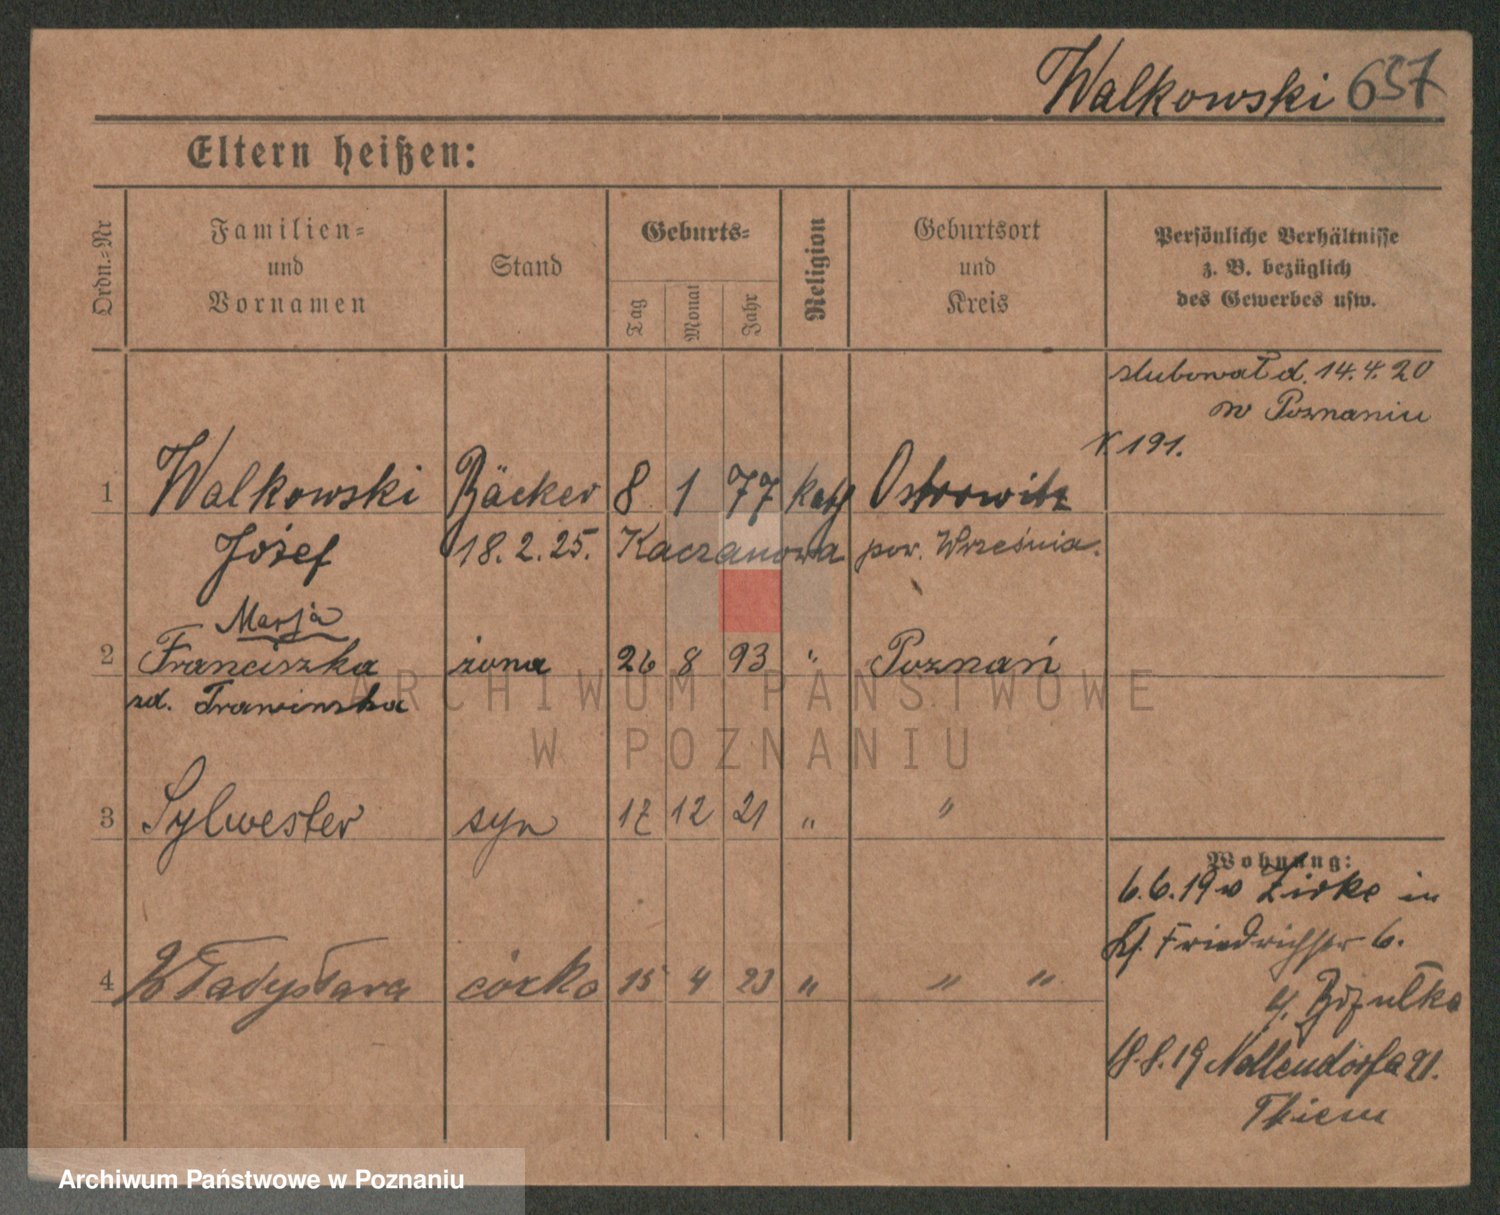 Walkowski 657
Eltern heißen:
Ordn.-Nr
Familien-
und
Vornamen
Stand
Geburts-
Tag
Monat
Jahr
Religion
Geburtsort
und
Kreis
Persönliche Verhältnisse
z. B. bezüglich
des Gewerbes usw.
slubował d. 14.4.20
w Poznaniu
N. 191.
1 Walkowski Bäcker 8 1 77 kath Ostrowitz
Józef 18.2.25. Kaczanowa pow. Września.
Marja
2 Franciszka żona 26 8 93 " Poznań
zd. Trawinska
3 Sylwester syn 17 12 21 " "
Wohnung:
6.6.19 v Zirke in
Friedrichstr 6.
4 Władysława córka 15 4 23 " " "
18.8.19 Nollendorfa 21.
Thiem
ARCHIWUM PAŃSTWOWE
W POZNANIU
Archiwum Państwowe w Poznaniu